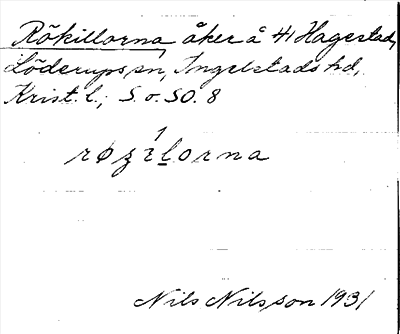 Rökillorna, åker å 41 Hagestad,
Löderups sn, Ingelstads hd,
Krist. l.; S. o. SO. 8
røzɪlorna
Nils Nilsson 1931